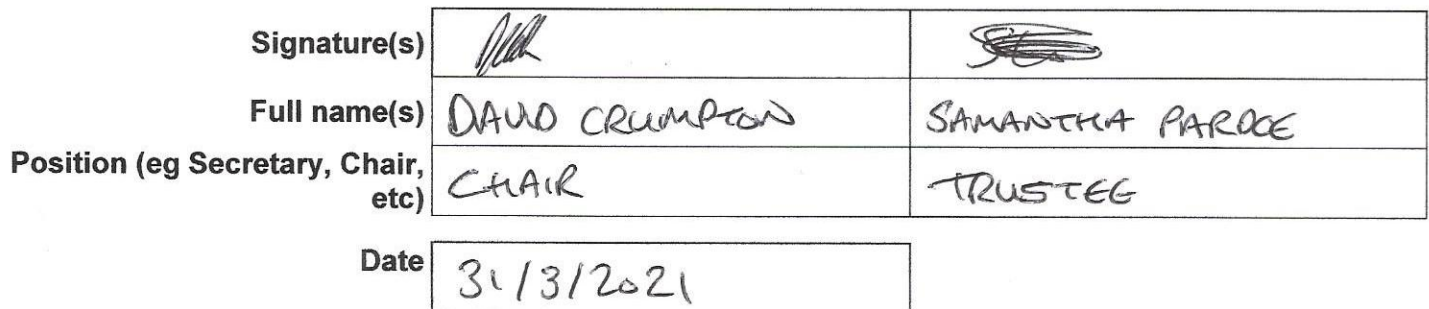 Signature(s)
Full name(s) DAVID CRUMPTON SAMANTHA PARDOE
Position (eg Secretary, Chair,
etc) CHAIR TRUSTEE
Date 31/3/2021